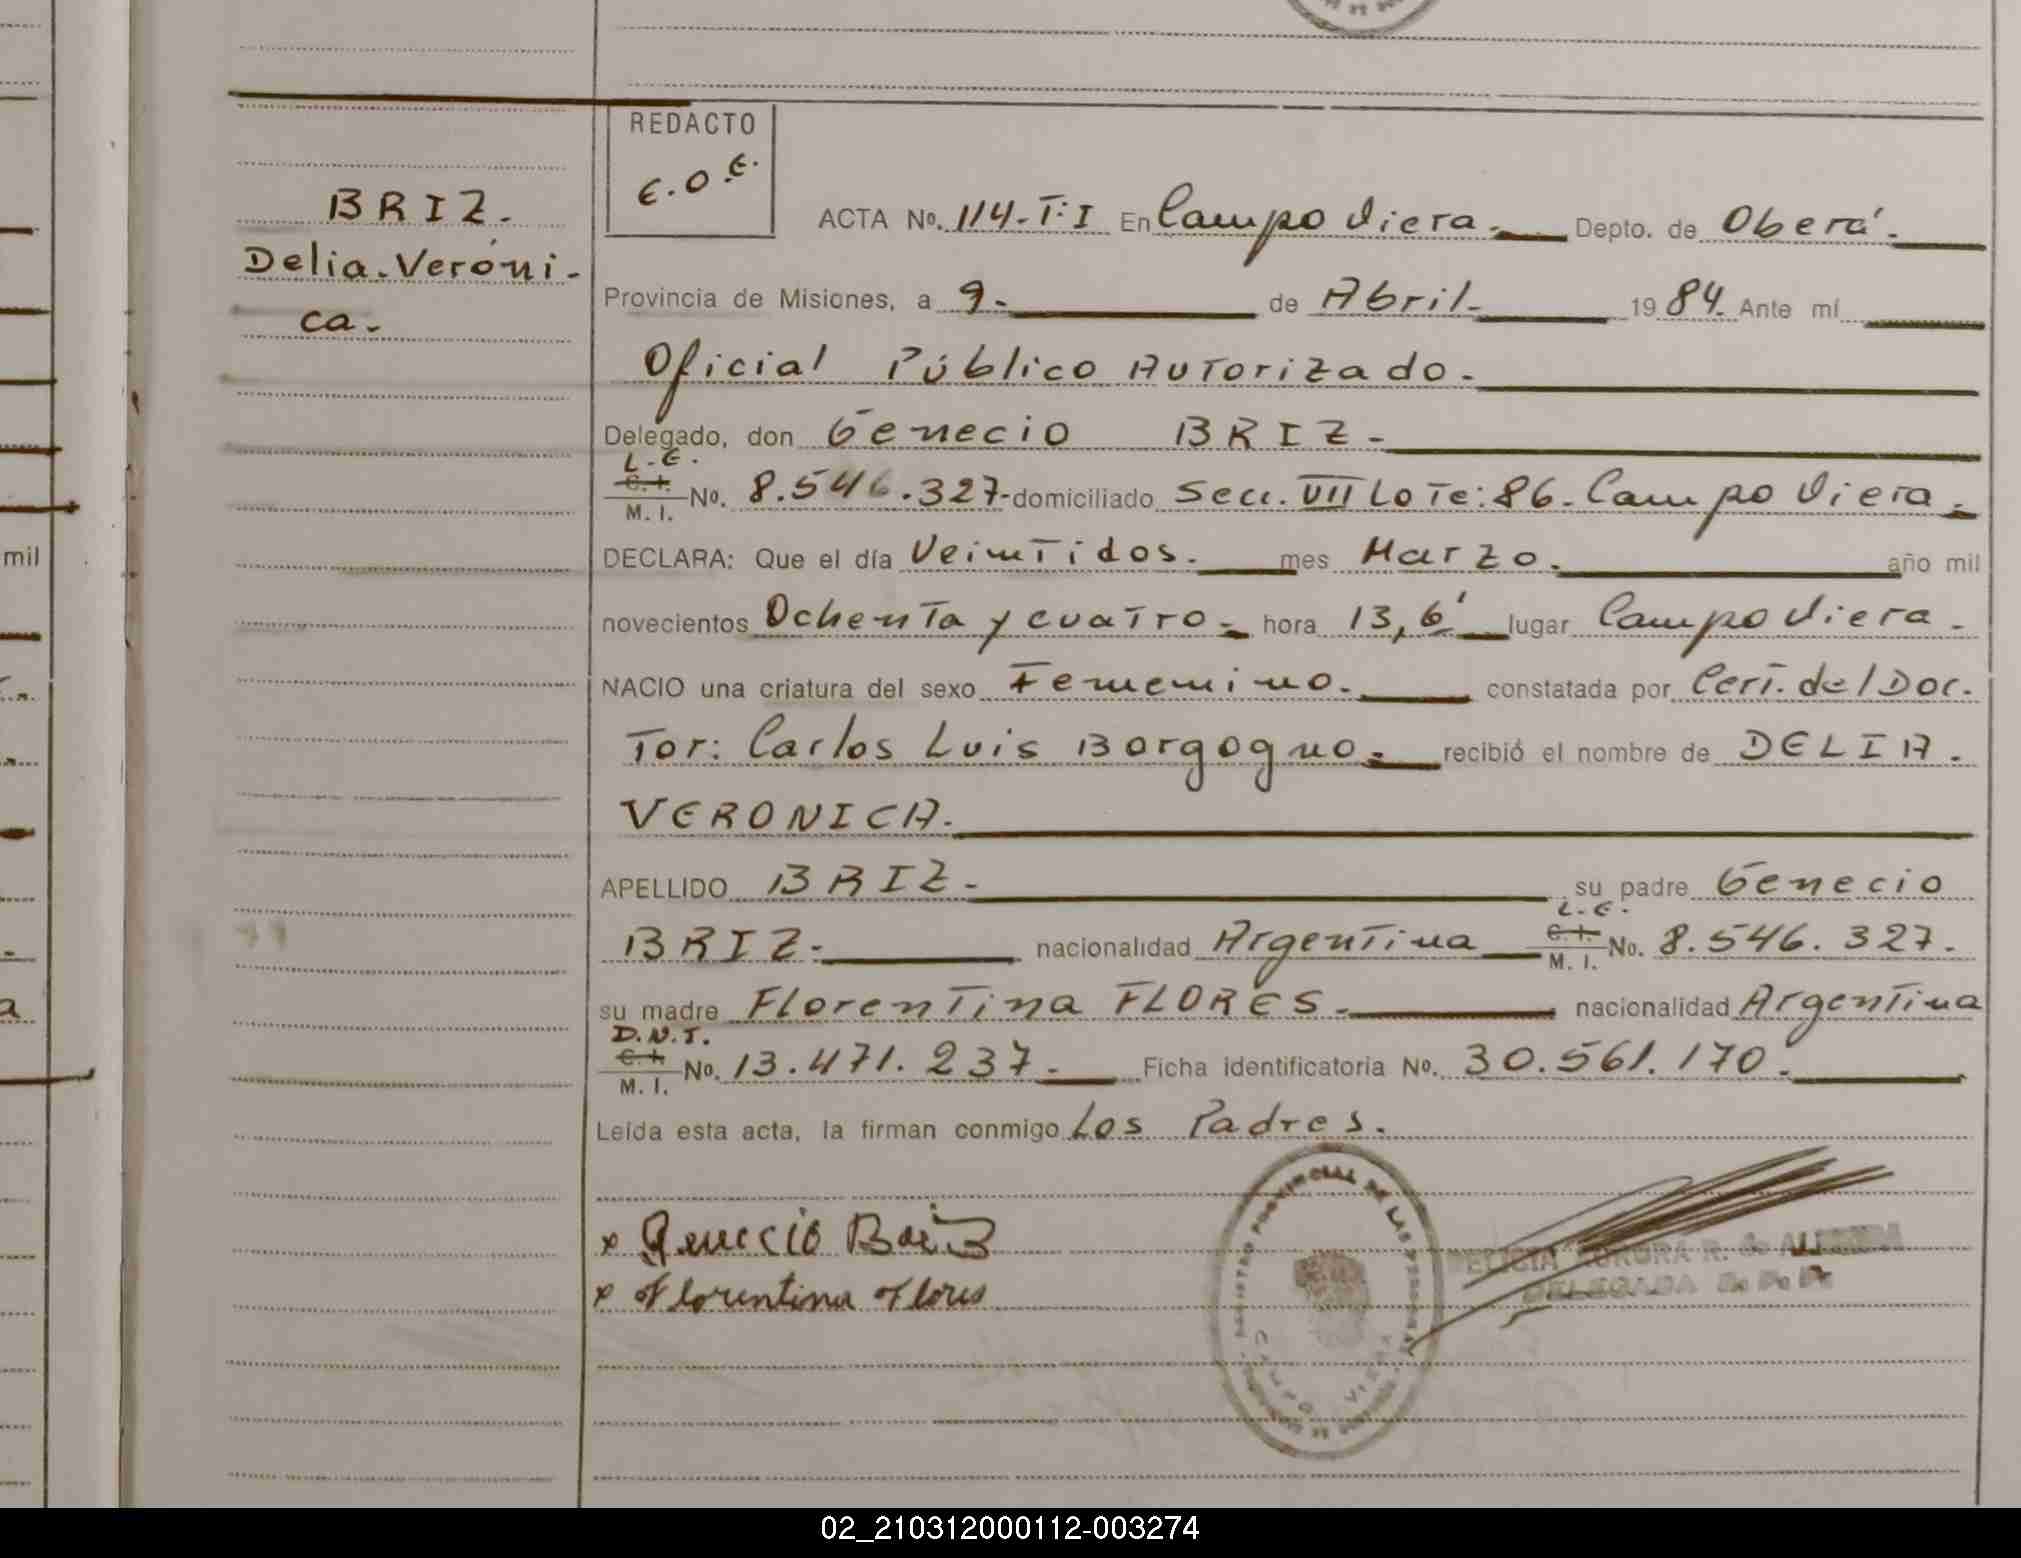 REDACTO
E.O.E.
BRIZ.
Delia.Veróni-
ca.
ACTA No. 114-T:I En Campo Viera. Depto. de Oberá.
Provincia de Misiones, a 9. de Abril. 1984. Ante mí
Oficial Público Autorizado.
Delegado, don Genecio BRIZ.
L.E.
C.I.
M.I. No. 8.546.327- domiciliado Secc. VII Lote: 86. Campo Viera.
DECLARA: Que el día Veintidos. mes Marzo. año mil
novecientos Ochenta y cuatro. hora 13,6' lugar Campo Viera.
NACIO una criatura del sexo Femenino. constatada por Cert. del Doc.
Tor: Carlos Luis Borgogno. recibió el nombre de DELIA.
VERONICA.
APELLIDO BRIZ. su padre Genecio
L.E.
BRIZ. nacionalidad Argentina C.I. M.I. No. 8.546.327.
su madre Florentina FLORES. nacionalidad Argentina
D.N.I.
C.I.
M.I. No. 13.471.237. Ficha identificatoria No. 30.561.170.
Leída esta acta, la firman conmigo Los Padres.
x Genecio Briz
x Florentina Flores
REGISTRO PROVINCIAL DE LAS PERSONAS
CAMPO VIERA
AURORA R. de
DELEGADA
mil
a
02_210312000112-003274